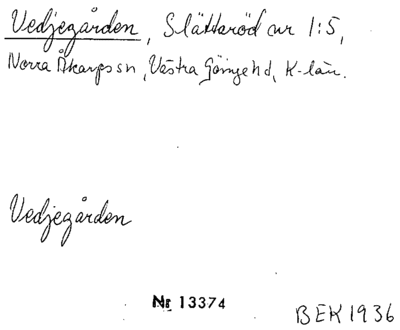 Vedjegården, Slättaröd nr 1:5,
Norra Åkarps sn, Västra Göinge hd, K-län.
Vedjegården
Nr 13374
BEK 1936